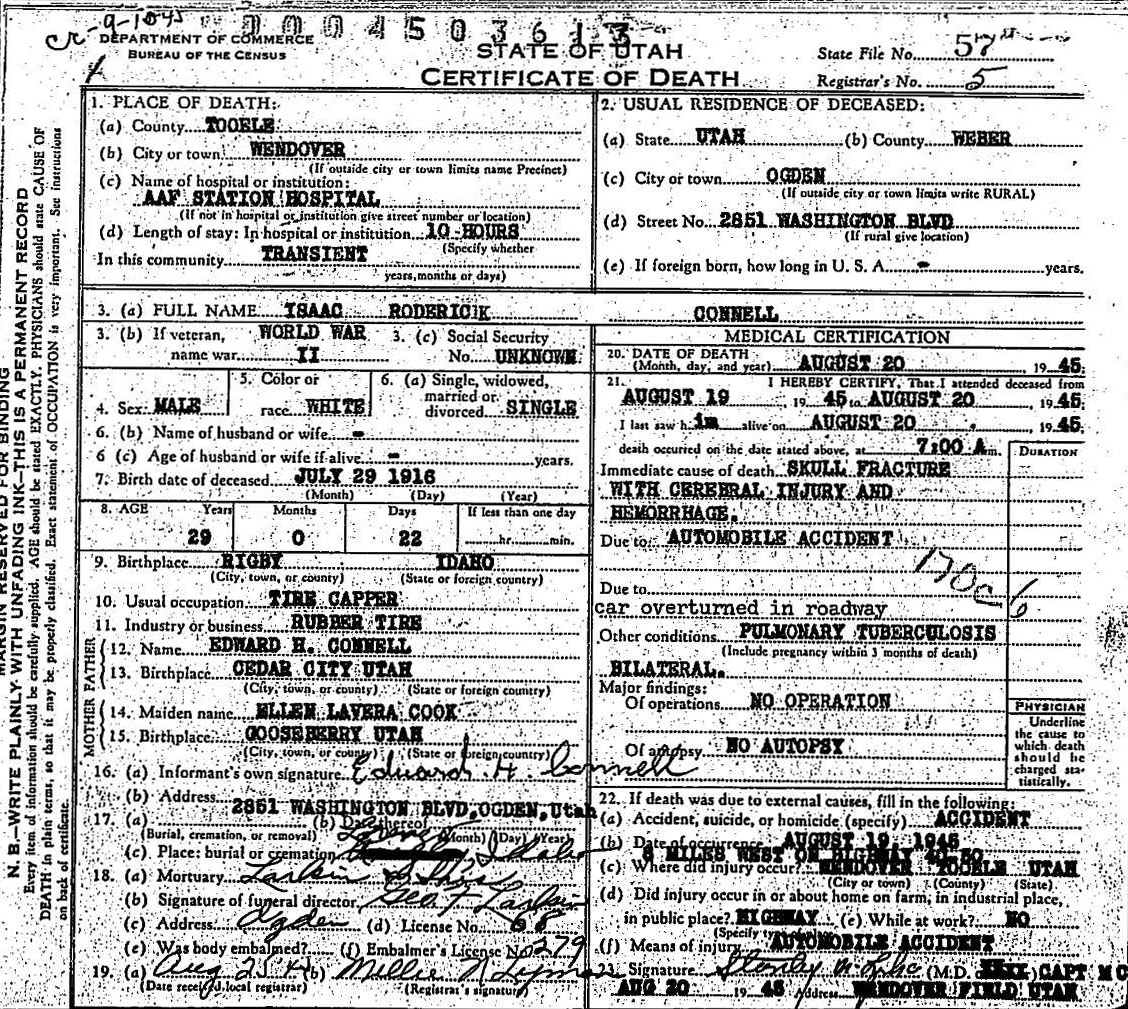 9-1045
0004503613
DEPARTMENT OF COMMERCE
BUREAU OF THE CENSUS
STATE OF UTAH
CERTIFICATE OF DEATH
State File No. 57
Registrar's No. 5
MARGIN RESERVED FOR BINDING
N. B.—WRITE PLAINLY WITH UNFADING INK—THIS IS A PERMANENT RECORD
Every item of information should be carefully supplied. AGE should be stated EXACTLY. PHYSICIANS should state CAUSE OF
DEATH in plain terms, so that it may be properly classified. Exact statement of OCCUPATION is very important. See instructions
on back of certificate.
1. PLACE OF DEATH:
(a) County TOOELE
(b) City or town WENDOVER
(If outside city or town limits name Precinct)
(c) Name of hospital or institution:
AAF STATION HOSPITAL
(If not in hospital or institution give street number or location)
(d) Length of stay: In hospital or institution 10 HOURS
(Specify whether
In this community TRANSIENT
years, months or days)
2. USUAL RESIDENCE OF DECEASED:
(a) State UTAH (b) County WEBER
(c) City or town OGDEN
(If outside city or town limits write RURAL)
(d) Street No. 2851 WASHINGTON BLVD
(If rural give location)
(e) If foreign born, how long in U. S. A. - years.
3. (a) FULL NAME ISAAC RODERICIK CONNELL
3. (b) If veteran, name war WORLD WAR II
3. (c) Social Security No. UNKNOWN
4. Sex MALE
5. Color or race WHITE
6. (a) Single, widowed, married or divorced SINGLE
6. (b) Name of husband or wife -
6 (c) Age of husband or wife if alive - years.
7. Birth date of deceased JULY 29 1916
(Month) (Day) (Year)
8. AGE Years Months Days If less than one day
29 0 22 hr. min.
9. Birthplace RIGBY IDAHO
(City, town, or county) (State or foreign country)
10. Usual occupation TIRE CAPPER
11. Industry or business RUBBER TIRE
FATHER
12. Name EDWARD H. CONNELL
13. Birthplace CEDAR CITY UTAH
(City, town, or county) (State or foreign country)
MOTHER
14. Maiden name ELLEN LAVERA COOK
15. Birthplace GOOSEBERRY UTAH
(City, town, or county) (State or foreign country)
16. (a) Informant's own signature Edward H. Connell
(b) Address 2851 WASHINGTON BLVD, OGDEN, Utah
17. (a) (b) Date thereof
(Burial, cremation, or removal) (Month) (Day) (Year)
(c) Place: burial or cremation Idaho
18. (a) Mortuary Larkin & Sons
(b) Signature of funeral director Geo T Larkin
(c) Address Ogden (d) License No. 68
(e) Was body embalmed? (f) Embalmer's License No 279
19. (a) Aug 25 45 (b) Millie
(Date received local registrar) (Registrar's signature)
MEDICAL CERTIFICATION
20. DATE OF DEATH
(Month, day, and year) AUGUST 20 19 45
21. I HEREBY CERTIFY, That I attended deceased from
AUGUST 19 19 45 to AUGUST 20, 19 45
I last saw h im alive on AUGUST 20, 19 45
death occurred on the date stated above, at 7:00 A m.
DURATION
Immediate cause of death SKULL FRACTURE
WITH CEREBRAL INJURY AND
HEMORRHAGE.
Due to AUTOMOBILE ACCIDENT
170c 6
Due to
car overturned in roadway
Other conditions PULMONARY TUBERCULOSIS
(Include pregnancy within 3 months of death)
BILATERAL.
Major findings:
Of operations NO OPERATION
Of autopsy NO AUTOPSY
PHYSICIAN
Underline
the cause to
which death
should be
charged sta-
tistically.
22. If death was due to external causes, fill in the following:
(a) Accident, suicide, or homicide (specify) ACCIDENT
(b) Date of occurrence AUGUST 19 1945
6 MILES WEST ON HIGHWAY 40-50
(c) Where did injury occur? WENDOVER TOOELE UTAH
(City or town) (County) (State)
(d) Did injury occur in or about home on farm, in industrial place,
in public place? HIGHWAY (e) While at work? NO
(Specify type of place)
(f) Means of injury AUTOMOBILE ACCIDENT
23. Signature (M.D. CAPT MC
AUG 20 19 45 Address WENDOVER FIELD UTAH